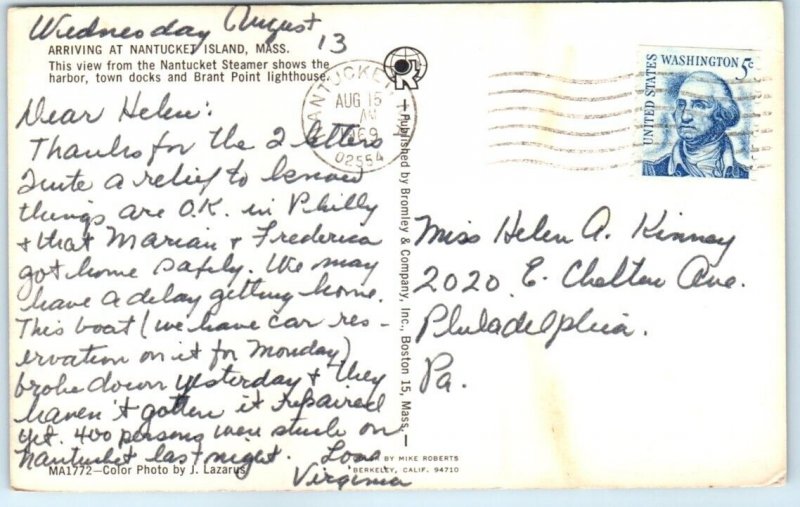 Wednesday August
13
ARRIVING AT NANTUCKET ISLAND, MASS.
This view from the Nantucket Steamer shows the
harbor, town docks and Brant Point lighthouse.
Dear Helen:
Thanks for the 2 letters
Quite a relief to know
things are O.K. in Philly
+ that Marian + Frederica
got home safely. We may
have a delay getting home.
This boat (we have car res-
ervation on it for Monday)
broke down yesterday + they
haven't gotten it repaired
yet. 400 persons were stuck on
Nantucket last night. Love
Virginia
MA1772—Color Photo by J. Lazarus
NANTUCKET
AUG 15
AM
1969
02554
Published by Bromley & Company, Inc., Boston 15, Mass.
BY MIKE ROBERTS
BERKELEY, CALIF. 94710
UNITED STATES
WASHINGTON 5c
Miss Helen A. Kinney
2020 E. Chelten Ave.
Philadelphia.
Pa.